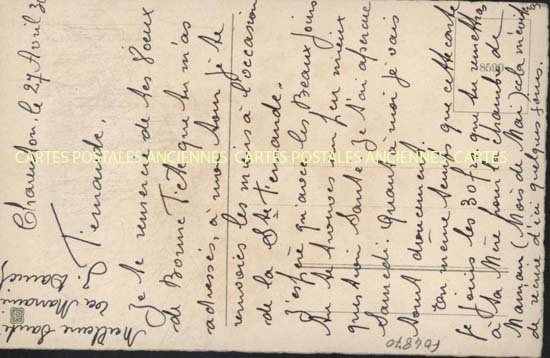 Charenton. le 27 Avril 36
Fernande,
Je te remercie de tes voeux
de Bonne Fête que tu m'as
adressés, à mon tour je te
renvoies les miens à l'occasion
de la Ste Fernande.
J'espère qu'avec les Beaux jours
tu te trouves un peu mieux
question Santé je t'ai aperçue
Samedi. Quant à moi je vais
tout doucement.
En même temps que cette carte
je joins les 30f que tu remettras
à ta Mère pour la chambre de
Maman (Mois de Mai) cela m'évite
de venir d'ici quelques jours.
Meilleure Santé
8590
F04840
CARTES POSTALES ANCIENNES CARTES POSTALES ANCIENNES CARTES POSTALES ANCIENNES